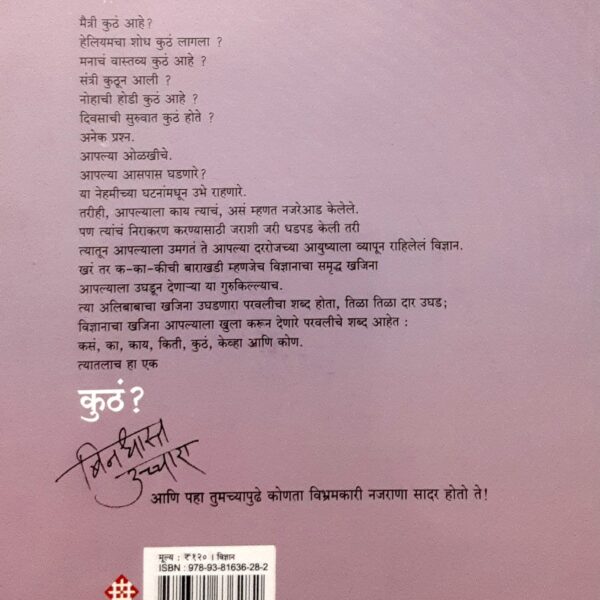 मैत्री कुठं आहे?
हेलियमचा शोध कुठं लागला ?
मनाचं वास्तव्य कुठं आहे ?
संत्री कुठून आली ?
नोहाची होडी कुठं आहे ?
दिवसाची सुरुवात कुठं होते ?
अनेक प्रश्न.
आपल्या ओळखीचे.
आपल्या आसपास घडणारे?
या नेहमीच्या घटनांमधून उभे राहणारे.
तरीही, आपल्याला काय त्याचं, असं म्हणत नजरेआड केलेले.
पण त्यांचं निराकरण करण्यासाठी जराशी जरी धडपड केली तरी
त्यातून आपल्याला उमगतं ते आपल्या दररोजच्या आयुष्याला व्यापून राहिलेलं विज्ञान.
खरं तर क-का-कीची बाराखडी म्हणजेच विज्ञानाचा समृद्ध खजिना
आपल्याला उघडून देणाऱ्या या गुरुकिल्ल्याच.
त्या अलिबाबाचा खजिना उघडणारा परवलीचा शब्द होता, तिळा तिळा दार उघड;
विज्ञानाचा खजिना आपल्याला खुला करून देणारे परवलीचे शब्द आहेत :
कसं, का, काय, किती, कुठं, केव्हा आणि कोण.
त्यातलाच हा एक
कुठं ?
बिनधास्त
उच्चारा
आणि पहा तुमच्यापुढे कोणता विभ्रमकारी नजराणा सादर होतो ते!
मूल्य : ₹ १२० । विज्ञान
ISBN : 978-93-81636-28-2